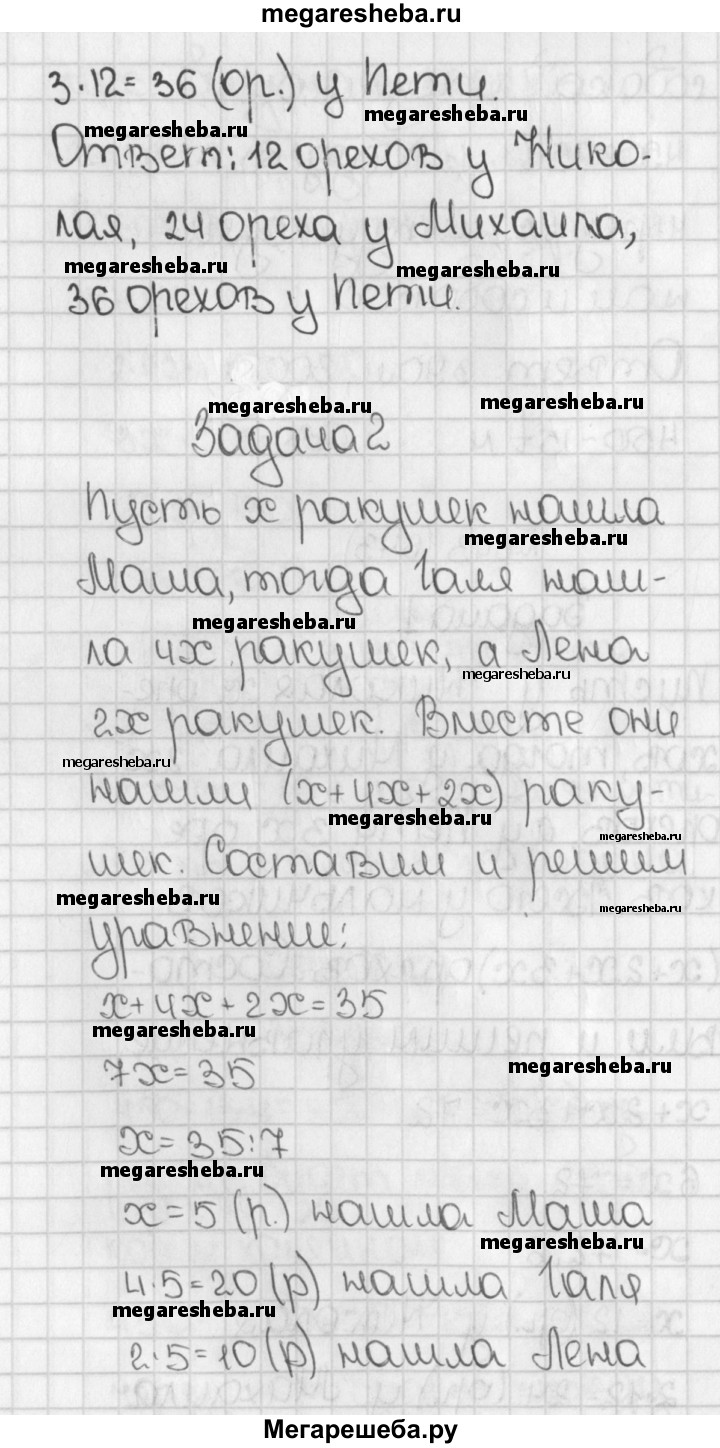 megaresheba.ru
3·12=36 (ор.) у Пети.
megaresheba.ru
megaresheba.ru
Ответ: 12 орехов у Нико-
лая, 24 ореха у Михаила,
megaresheba.ru
megaresheba.ru
36 орехов у Пети.
megaresheba.ru
megaresheba.ru
Задача 2
Пусть x ракушек нашла
megaresheba.ru
Маша, тогда Галя наш-
megaresheba.ru
ла 4x ракушек, а Лена
megaresheba.ru
2x ракушек. Вместе они
megaresheba.ru
нашли (x+4x+2x) раку-
megaresheba.ru
megaresheba.ru
шек. Составим и решим
megaresheba.ru
megaresheba.ru
уравнение:
x+4x+2x=35
megaresheba.ru
megaresheba.ru
7x=35
x=35:7
megaresheba.ru
x=5 (р.) нашла Маша
megaresheba.ru
4·5=20(р) нашла Галя
megaresheba.ru
2·5=10(р) нашла Лена
Мегарешеба.ру